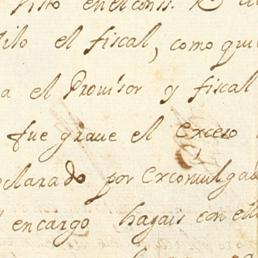 Visto en el cons.º R.
silo el fiscal, como qui
a el Provisor y fiscal
fue graue el exceso
clarado por excomulga
encargo hagais con ell